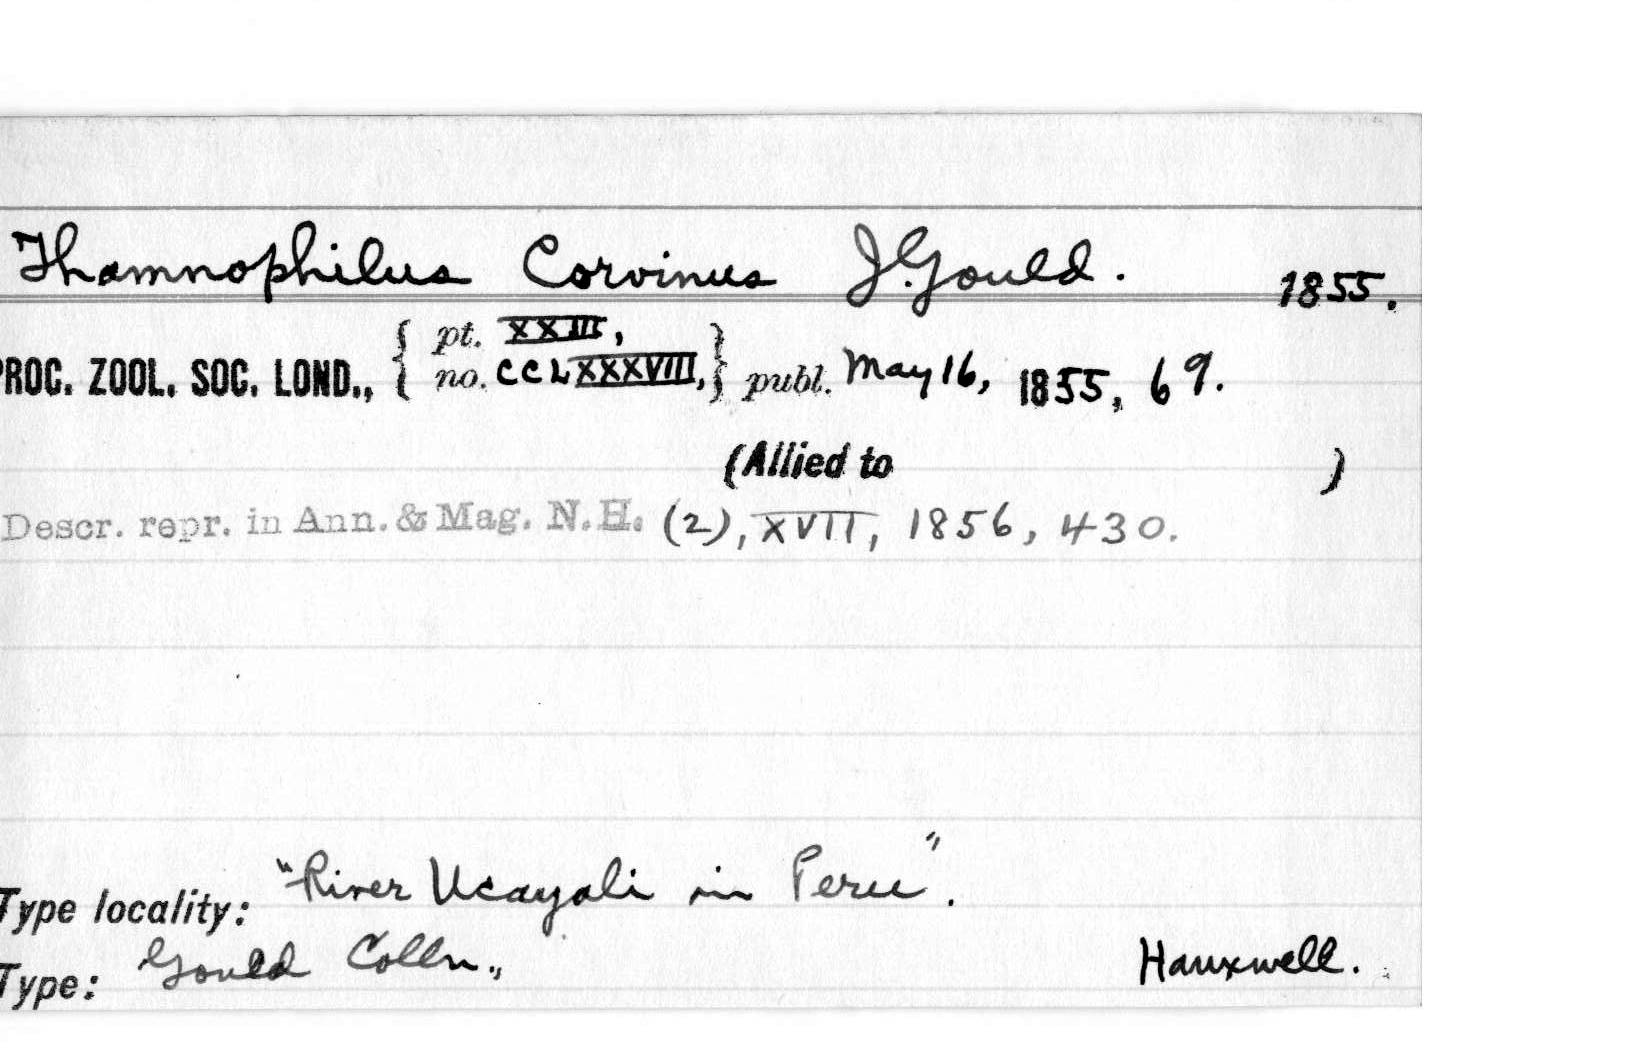 Thamnophilus Corvinus J. Gould. 1855.
PROC. ZOOL. SOC. LOND., { pt. XXIII, no. CCLXXXVIII, } publ. May 16, 1855, 69.
(Allied to )
Descr. repr. in Ann. & Mag. N. H. (2), XVII, 1856, 430.
Type locality: "River Ucayali in Peru".
Type: Gould Colln., Hauxwell.